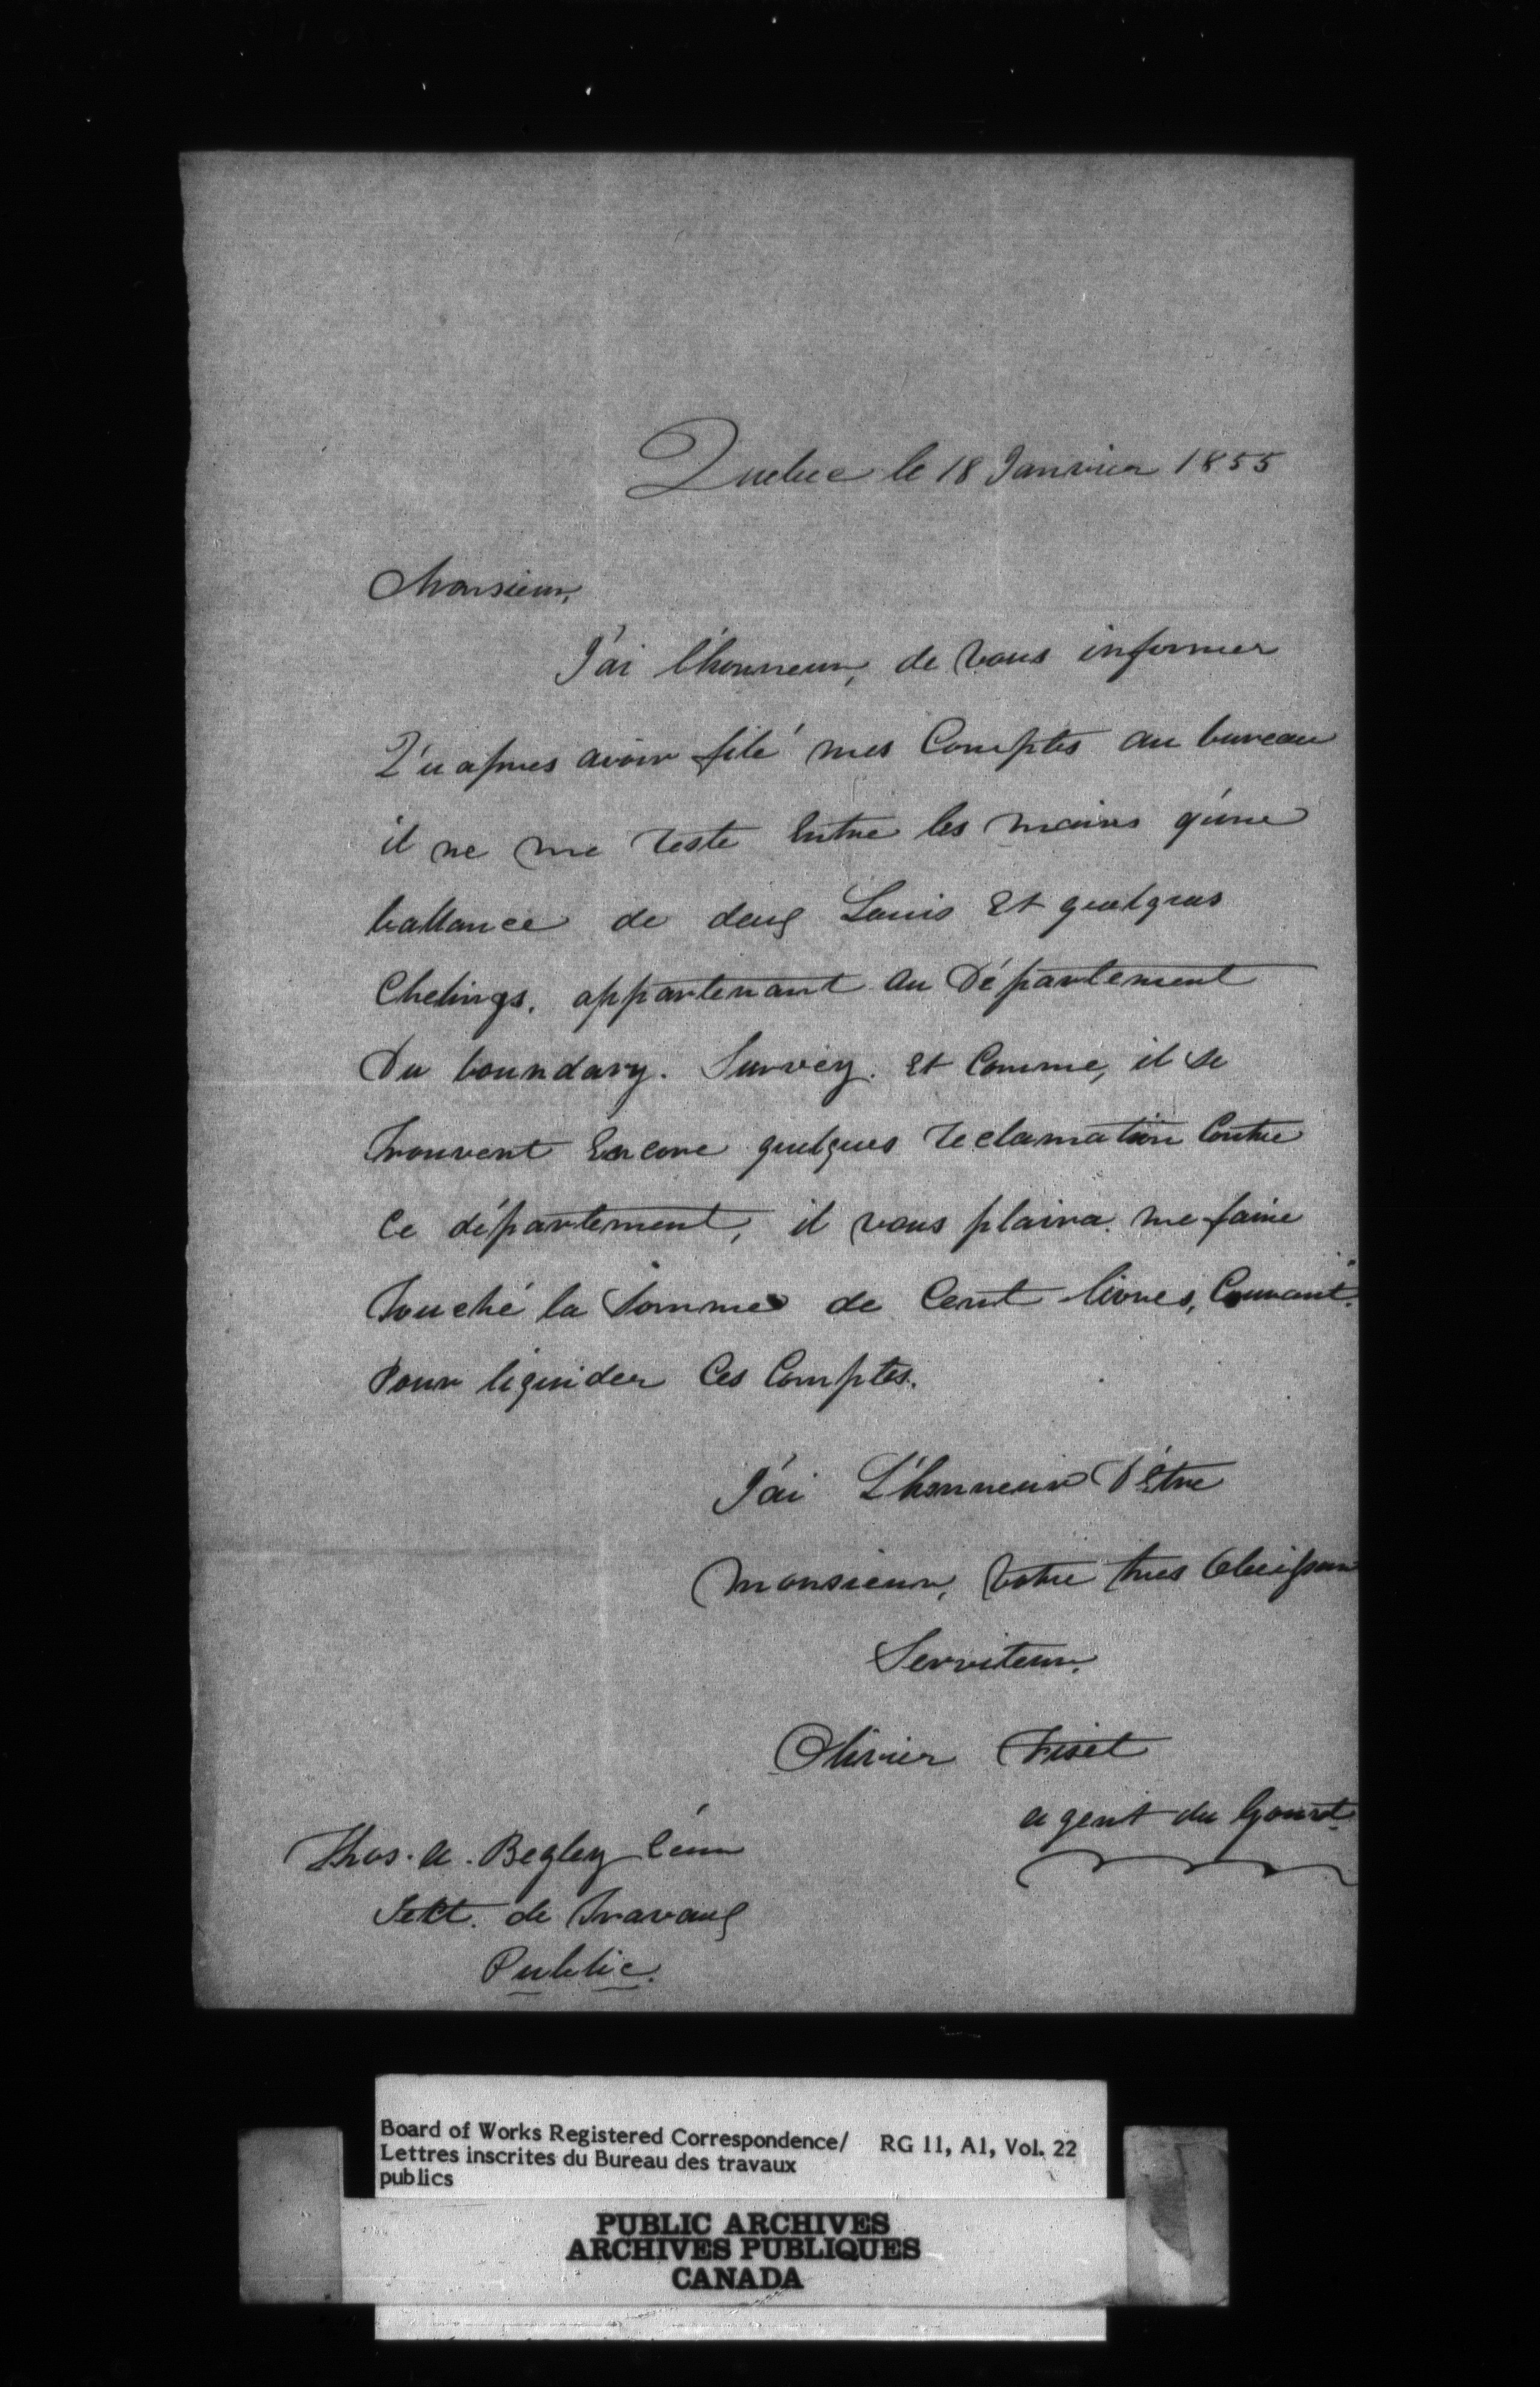 Quebec le 18 Janvier 1855
Monsieur,
J'ai l'honneur, de vous informer
Qu'apres avoir filé mes Comptes au bureau
il ne me reste Entre les mains q'une
ballance de deux Louis Et quelques
Chelings. appartenant au Département
Du boundary. Survey. Et Comme, il se
trouvent Encore quelques reclamation Contre
Ce département, il vous plaira. me faire
Touché la Somme de Cent livres, Courant.
Pour liquider Ces Comptes.
J'ai L'honneur D'Etre
Monsieur, Votre tres Obeissan
Serviteur.
Olivier Fiset
agent du Gouvt.
Thos. A. Begley Ecur
Sect. de Travaux
Public.
Board of Works Registered Correspondence/ RG 11, A1, Vol. 22
Lettres inscrites du Bureau des travaux
publics
PUBLIC ARCHIVES
ARCHIVES PUBLIQUES
CANADA